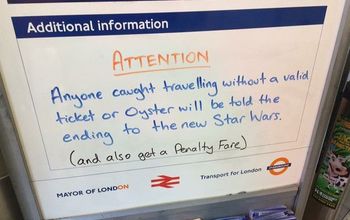 Additional information
ATTENTION
Anyone caught travelling without a valid
ticket or Oyster will be told the
ending to the new Star Wars.
(and also get a Penalty Fare)
MAYOR OF LONDON
Transport for London